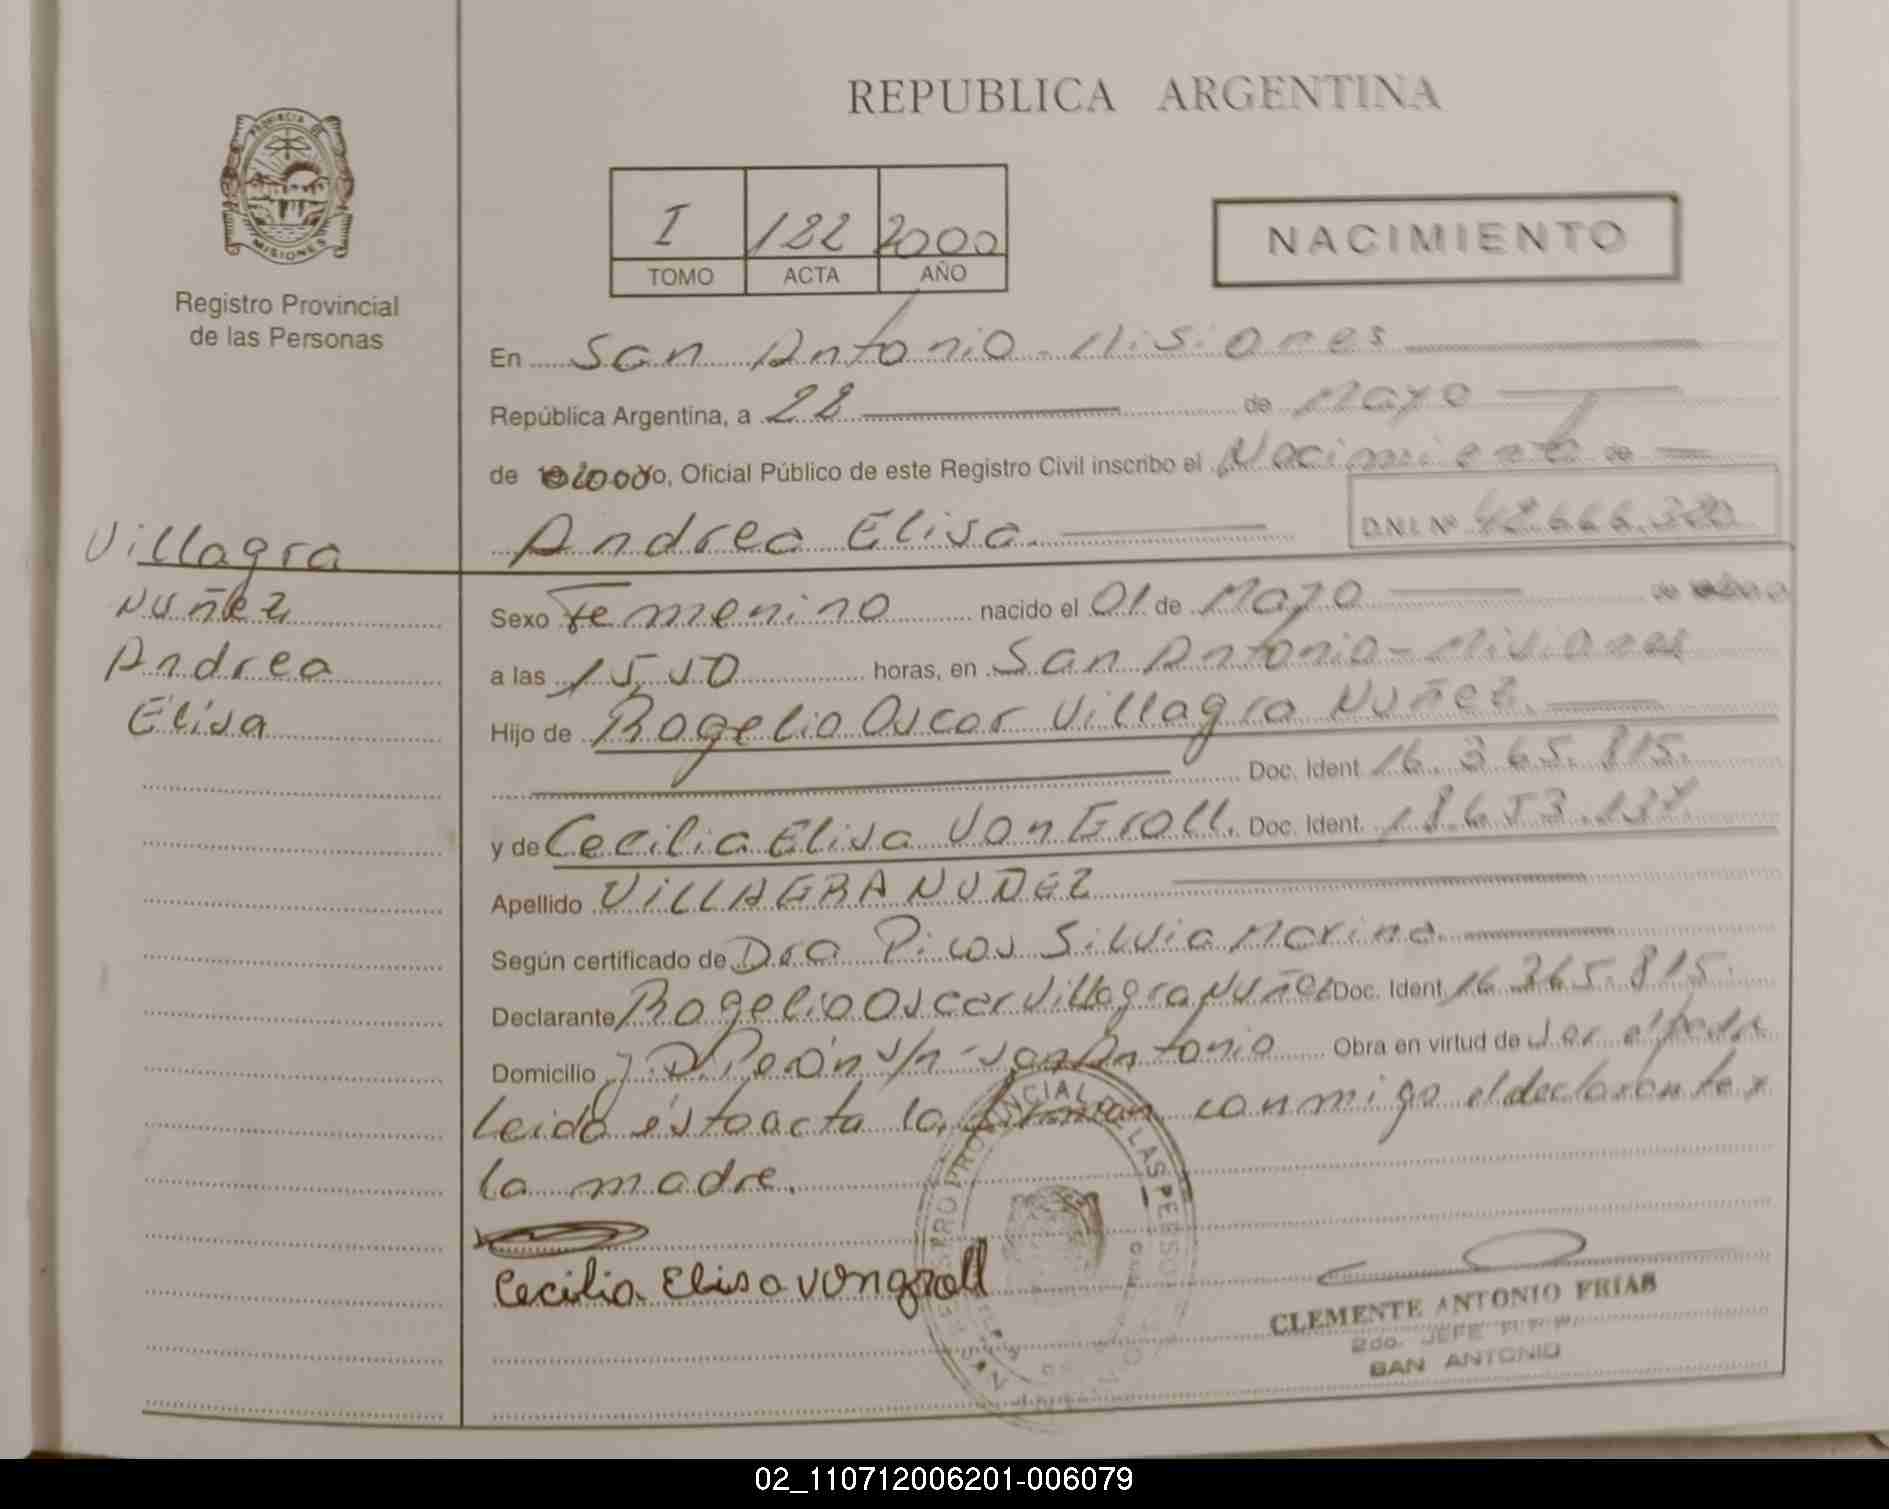 REPUBLICA ARGENTINA
PROVINCIA DE
MISIONES
Registro Provincial
de las Personas
I 122 2000
TOMO ACTA AÑO
NACIMIENTO
En San Antonio - Misiones
República Argentina, a 22 de Mayo
de 2000 Yo, Oficial Público de este Registro Civil inscribo el Nacimiento de
Andrea Elisa. D.N.I. Nº
Villagra
Nuñez
Andrea
Elisa
Sexo Femenino nacido el 01 de Mayo de
a las 15,50 horas, en San Antonio - Misiones
Hijo de Rogelio Oscar Villagra Nuñez.
Doc. Ident 16.365.815.
y de Cecilia Elisa Von Groll. Doc. Ident. 18.653.137
Apellido VILLAGRA NUÑEZ
Según certificado de Dra Picos Silvia Marina.
Declarante Rogelio Oscar Villagra Nuñez Doc. Ident 16.365.815.
Domicilio J.D. Perón s/n - San Antonio Obra en virtud de ser el padre
Leida ésta acta la firman conmigo el declarante y
la madre.
Cecilia Elisa vongroll
CLEMENTE ANTONIO FRIAS
2do. JEFE R.P.P.
SAN ANTONIO
02_110712006201-006079